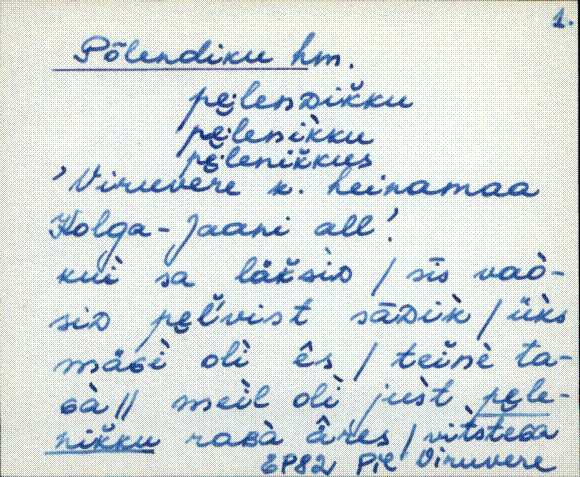 1.
Põlendiku hm.
pe̮lenᴅik̆ku
pe̮lenik̀ku
pe̮lenik̆kus
'Viruvere k. heinamaa
Kolga-Jaani all'.
kuì sa läk̆siᴅ / sīs vaò-
siᴅ pe̮l̆vist sāᴅik̀ / ük̀s
mäɢì olì ês / tein̆è ta-
ɢà // meìl olì jus̀t pe̮le-
nik̆ku raʙà âres / vit̀steɢa
EP82 Pil Viruvere